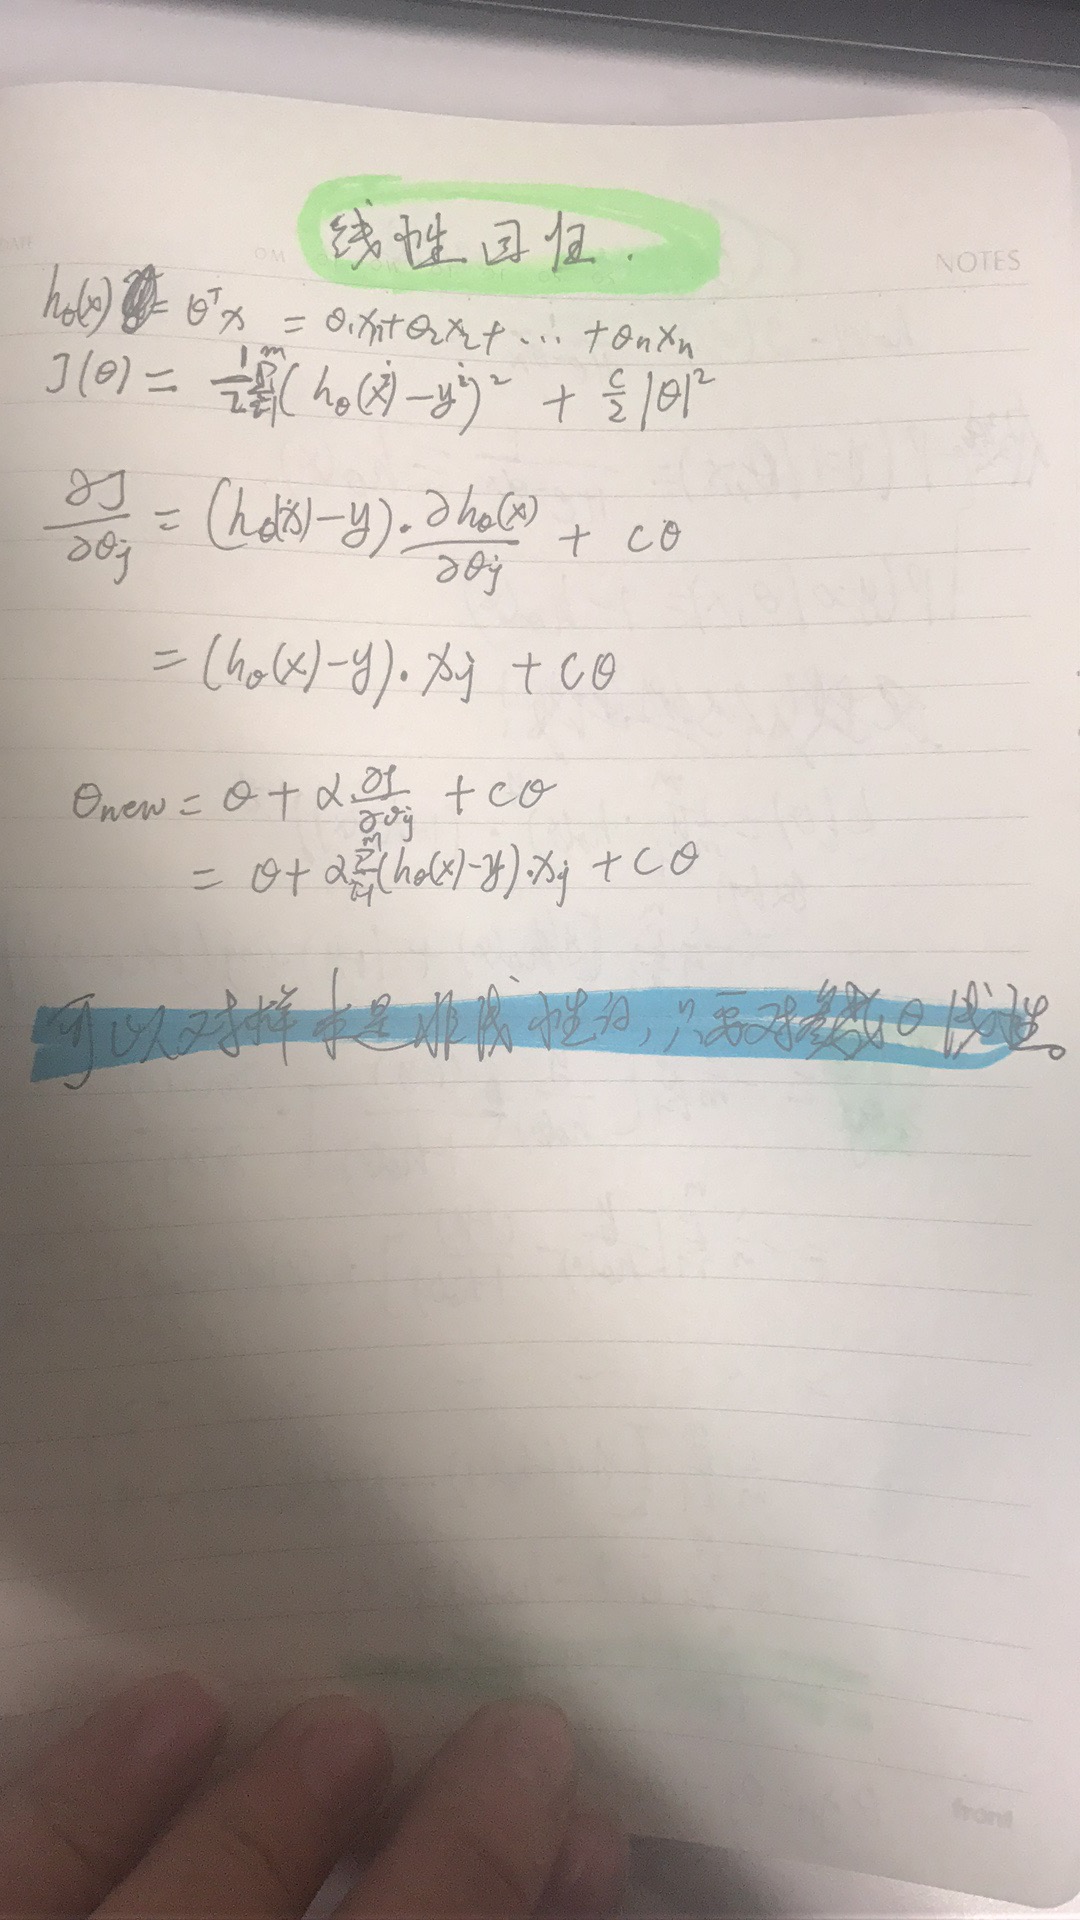 线性回归.
NOTES
hθ(x) = θᵀx = θ₁x₁+θ₂x₂+ ... +θₙxₙ
J(θ) = 1/2 Σᵢ₌₁ᵐ (hθ(xⁱ)-yⁱ)² + c/2 |θ|²
∂J/∂θⱼ = (hθ(x)-y)·∂hθ(x)/∂θⱼ + cθ
= (hθ(x)-y)·xⱼ + cθ
θnew = θ + α ∂J/∂θⱼ + cθ
= θ + α Σᵢ₌₁ᵐ (hθ(x)-y)·xⱼ + cθ
可以对样本是非线性的,只要对参数θ线性。
front